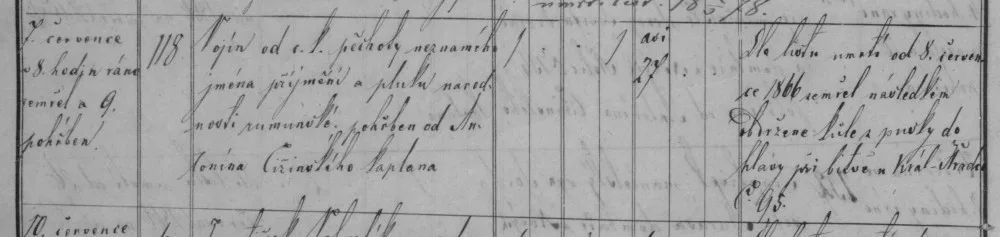 7. července
v 8. hodin ráno
zemřel a 9.
pohřben.
118
Vojín od c. k. pěchoty neznámého
jména příjmění a pluku národ-
nosti rumunské. pohřben od An-
tonína Čižinského kaplana
1 . . 1
asi
27
Dle listu úmrtí od 8. červen-
ce 1866 zemřel následkem
obdržené kule z pušky do
hlavy při bitvě u Král. Hradce
Č. 95.
10. července